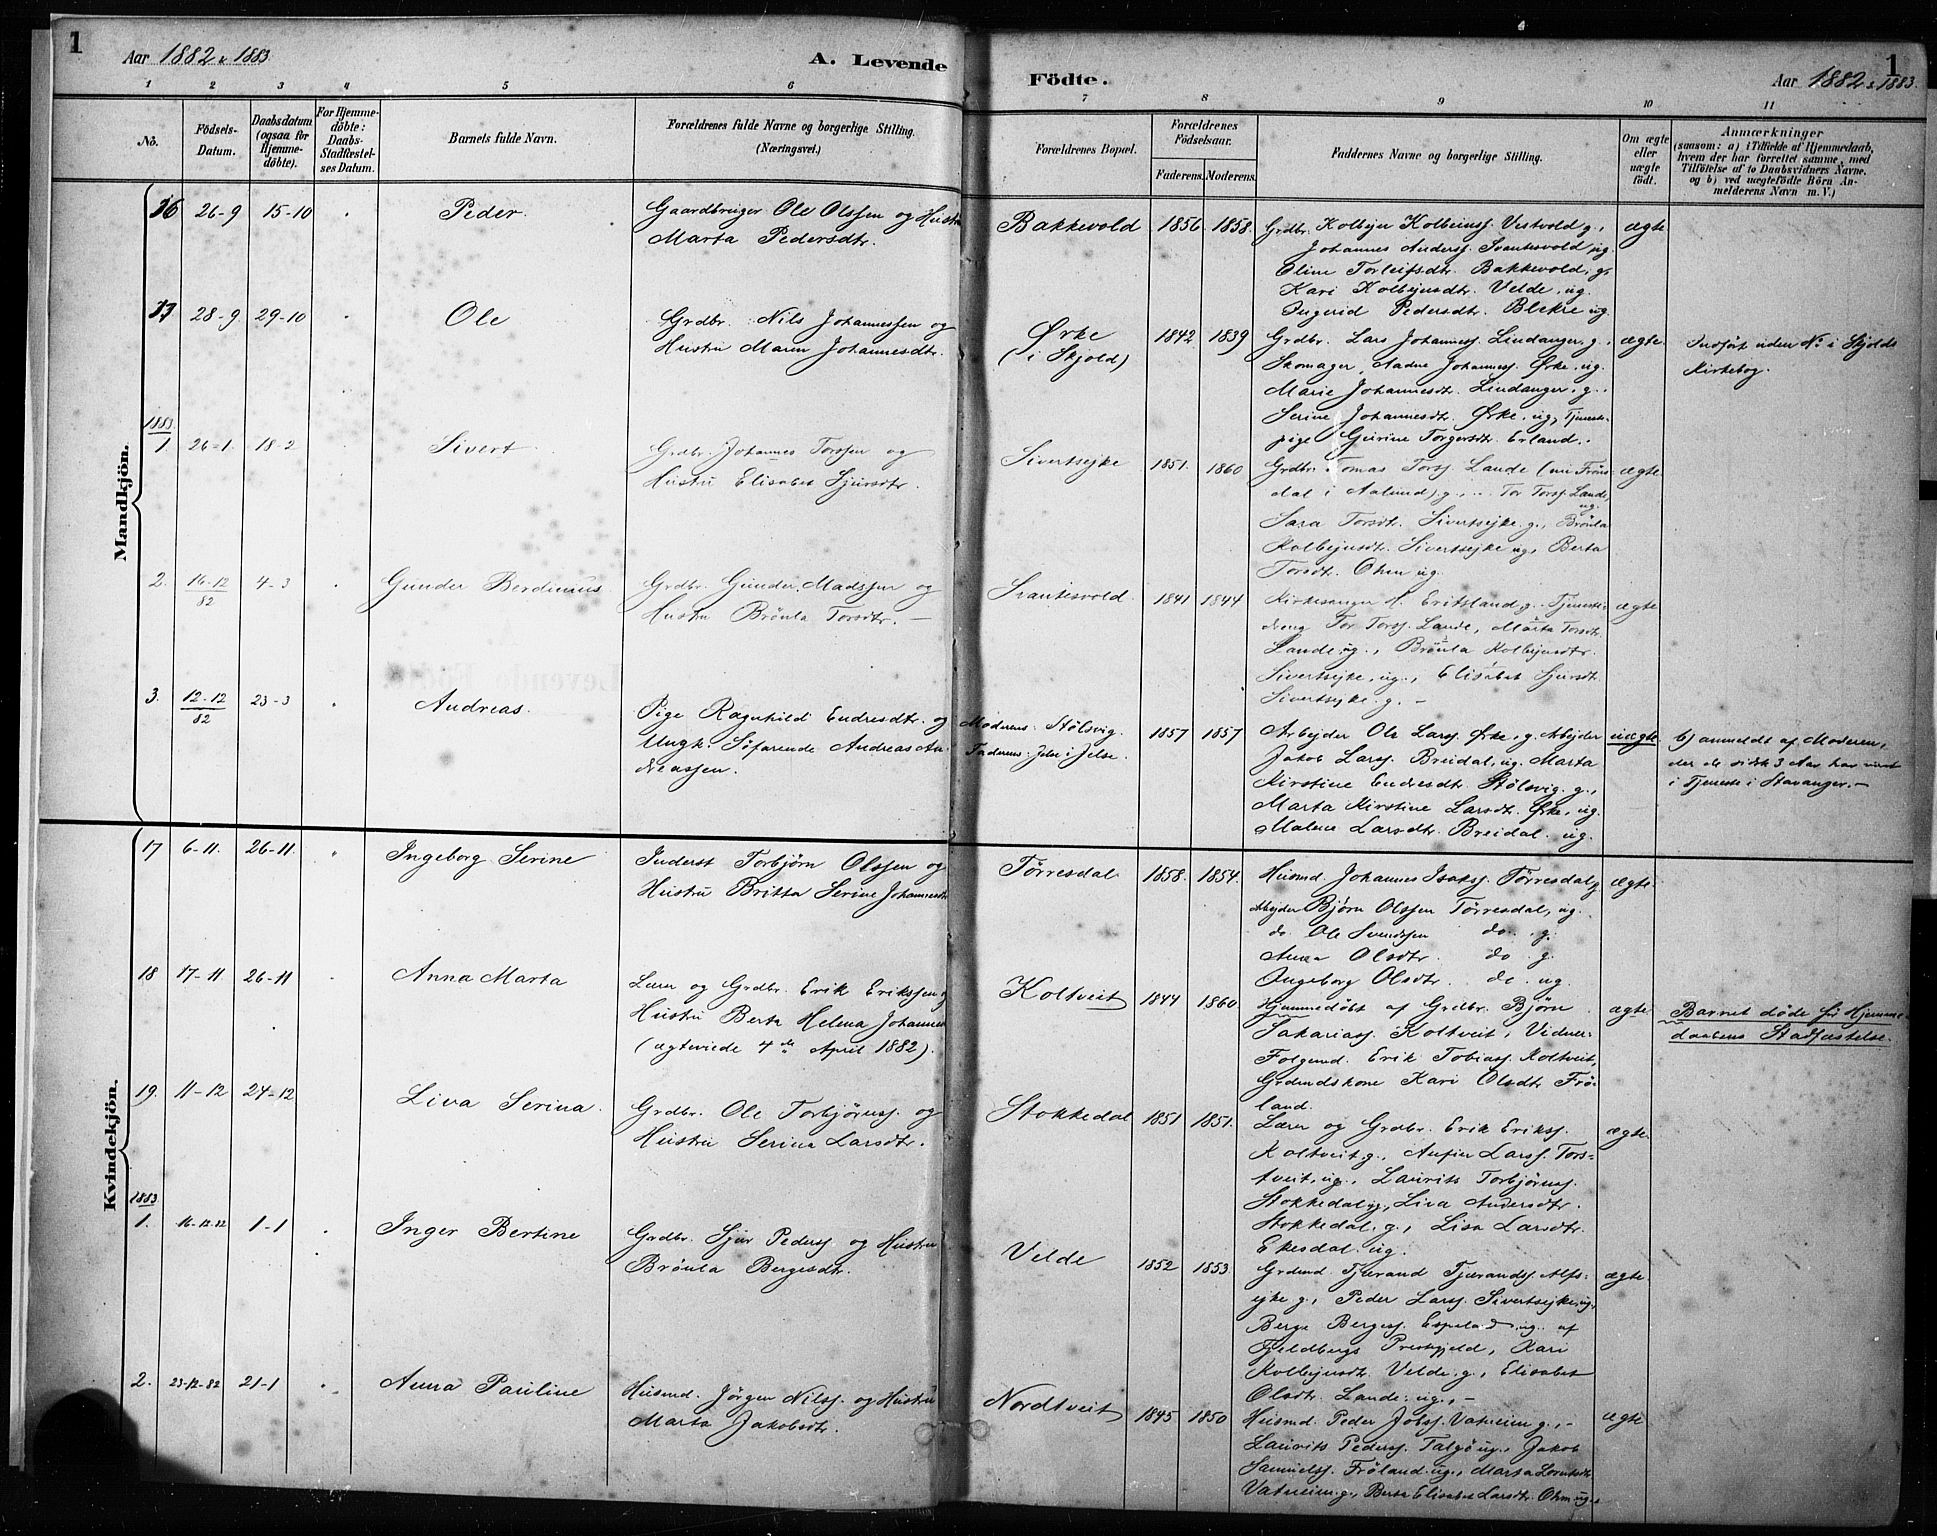 1
Aar 1882 & 1883
A. Levende
Födte.
Aar 1882 & 1883.
1
1 2 3 4 5 6 7 8 9 10 11
No.
Födsels-
Datum.
Daabsdatum
(ogsaa for
Hjemme-
döbte).
For Hjemme-
döbte:
Daabs-
Stadfæstel-
ses Datum.
Barnets fulde Navn.
Forældrenes fulde Navne og borgerlige Stilling.
(Næringsvei.)
Forældrenes Bopæl.
Forældrenes
Födselsaar.
Faderens. Moderens.
Faddernes Navne og borgerlige Stilling.
Om ægte
eller
uægte
födt.
Anmærkninger
(saasom: a) i Tilfælde af Hjemmedaab,
hvem der har forrettet samme, med
Tilföielse af to Daabsvidners Navne,
og b) ved uægtefödte Börn An-
melderens Navn m. V.)
Mandkjön.
16 26-9 15-10 Peder
Gaardbruger Ole Olssen og Hustru
Marta Pedersdtr.
Bakkevold 1856 1858 ægte
Grdbr. Kolbejn Kolbeinss. Vestvold g.,
Johannes Anderss. Svantesvold ug.
Oline Torleifsdtr. Bakkevold, g.
Kari Kolbejnsdtr. Velde, ug.
Ingerid Pedersdtr. Blekre ug.
17 28-9 29-10 Ole
Grdbr. Nils Johannessen og
Hustru Maren Johannesdtr.
Ørke
(i Skjold)
1842 1839 ægte
Grdbr. Lars Johanness. Lindanger, g.,
Skomager, Aadne Johanness. Ørke, ug.
Marie Johannesdtr. Lindanger, g.,
Serine Johannesdtr. Ørke, ug, Tjeneste-
pige Gurine Torgersdtr. Erland.
Indført uden No. i Skjolds
Kirkebog.
1883
1 26-1 18-2 Sivert
Grdbr. Johannes Torssen og
Hustru Elisabet Sjursdtr.
Sivertsejke 1851. 1860 ægte
Grdbr. Tomas Torss. Lande
Tor Torss. Lande,
ug.
Sara Torsdtr. Sivertsejke g., Brönla
Kolbejnsdtr. Sivertsejke ug, Berta
Torsdtr. Ohm ug.
2. 16-12
82
4-3 Gunder Berdinius
Grdbr. Gunder Madssen og
Hustru Brönla Torsdtr. –
Svantesvold. 1841 1844 ægte
Kirkesanger Eritsland, g. Tjeneste-
dreng Tor Torss. Lande, Marta Torsdtr.
Lande, ug., Brönla Kolbejnsdtr.
Sivertsejke, ug., Elisabet Sjursdtr.
Sivertsejke g. –
3. 12-12
82
23-3 Andreas.
Pige Ragnhild Endresdtr. og
Ungk. Söfarende Andreas An-
dreassen.
Moderens: Stölsvig.
Faderens: Jelse i Jelse.
1857 1857 uægte
Arbejder Ole Larss. Ørke, g. Arbejder
Jakob Larss. Breidal, ug. Marta
Kirstine Endresdtr. Stölsvig. g.,
Marta Kirstine Larsdtr. Ørke, ug.
Malene Larsdtr. Breidal. ug.
b) anmeldt af Moderen,
der de sidste 3 Aar har været
i Tjeneste i Stavanger. –
Kvindekjön.
17 6-11. 26-11. Ingeborg Serine
Inderst Torbjörn Olssen og
Hustru Britta Serine Johannesdtr
Tørresdal 1858. 1854. ægte.
Husmd. Johannes Isakss. Tørresdal, g
Arbejder Bjørn Olssen Tørresdal, ug.
do. Ole Svendssen do. g.
Anna Olsdtr. do g.
Ingeborg Olsdtr. do. ug.
18 17-11 26-11 Anna Marta
Lærer og Grdbr. Erik Erikssen og
Hustru Berta Helena Johannes
(ægteviede 4de April 1882).
Koltveit 1844 1860 ægte.
Hjemmedøbt af Grdbr. Bjørn
Sakariass. Koltveit, Vidner:
Folgemd. Erik Tobiass. Koltveit,
Grdmdskone Kari Olsdtr Frö-
land.
Barnet döde för Hjemme-
daabens Stadfæstelse.
19. 11-12 24-12 Liva Serina.
Grdbr. Ole Torbjörnss. og
Hustru Serina Larsdtr.
Stokkedal 1851 1851. ægte.
Lærer og Grdbr. Erik Erikss.
Koltveit, g., Anfin Larss. Tors-
tveit, ug., Laurits Torbjörnss.
Stokkedal, g., Liva Andersdtr.
Stokkedal, g., Lisa Larsdtr.
Ekesdal. ug.
1883
1. 16-12-82 1-1 Inger Bertine
Grdbr. Sjur Pederss. og Hustru
Brönla Bergesdtr.
Velde 1852 1853. ægte.
Grdmd. Tjærand Tjærandss. Alfs-
ejke g., Peder Larss. Sivertsejke, ug.,
Berge Bergess. Espeland, ug. af
Fjeldbergs Prestegjeld, Kari
Kolbejnsdtr. Velde, g., Elisabet
Olsdtr. Lande, ug., –
2. 23-12-82 21-1 Anna Pauline
Husmd. Jörgen Nilss. og Hustru
Marta Jakobsdtr.
Nordtveit 1845 1850 ægte
Husmd. Peder Jobss. Vatneim g., –
Laurits Pederss. Talgö ug., Jakob
Samuelss. Fröland. ug., Marta
Vatneim. g., Berta Elisabet Larsdtr. Ohm ug.